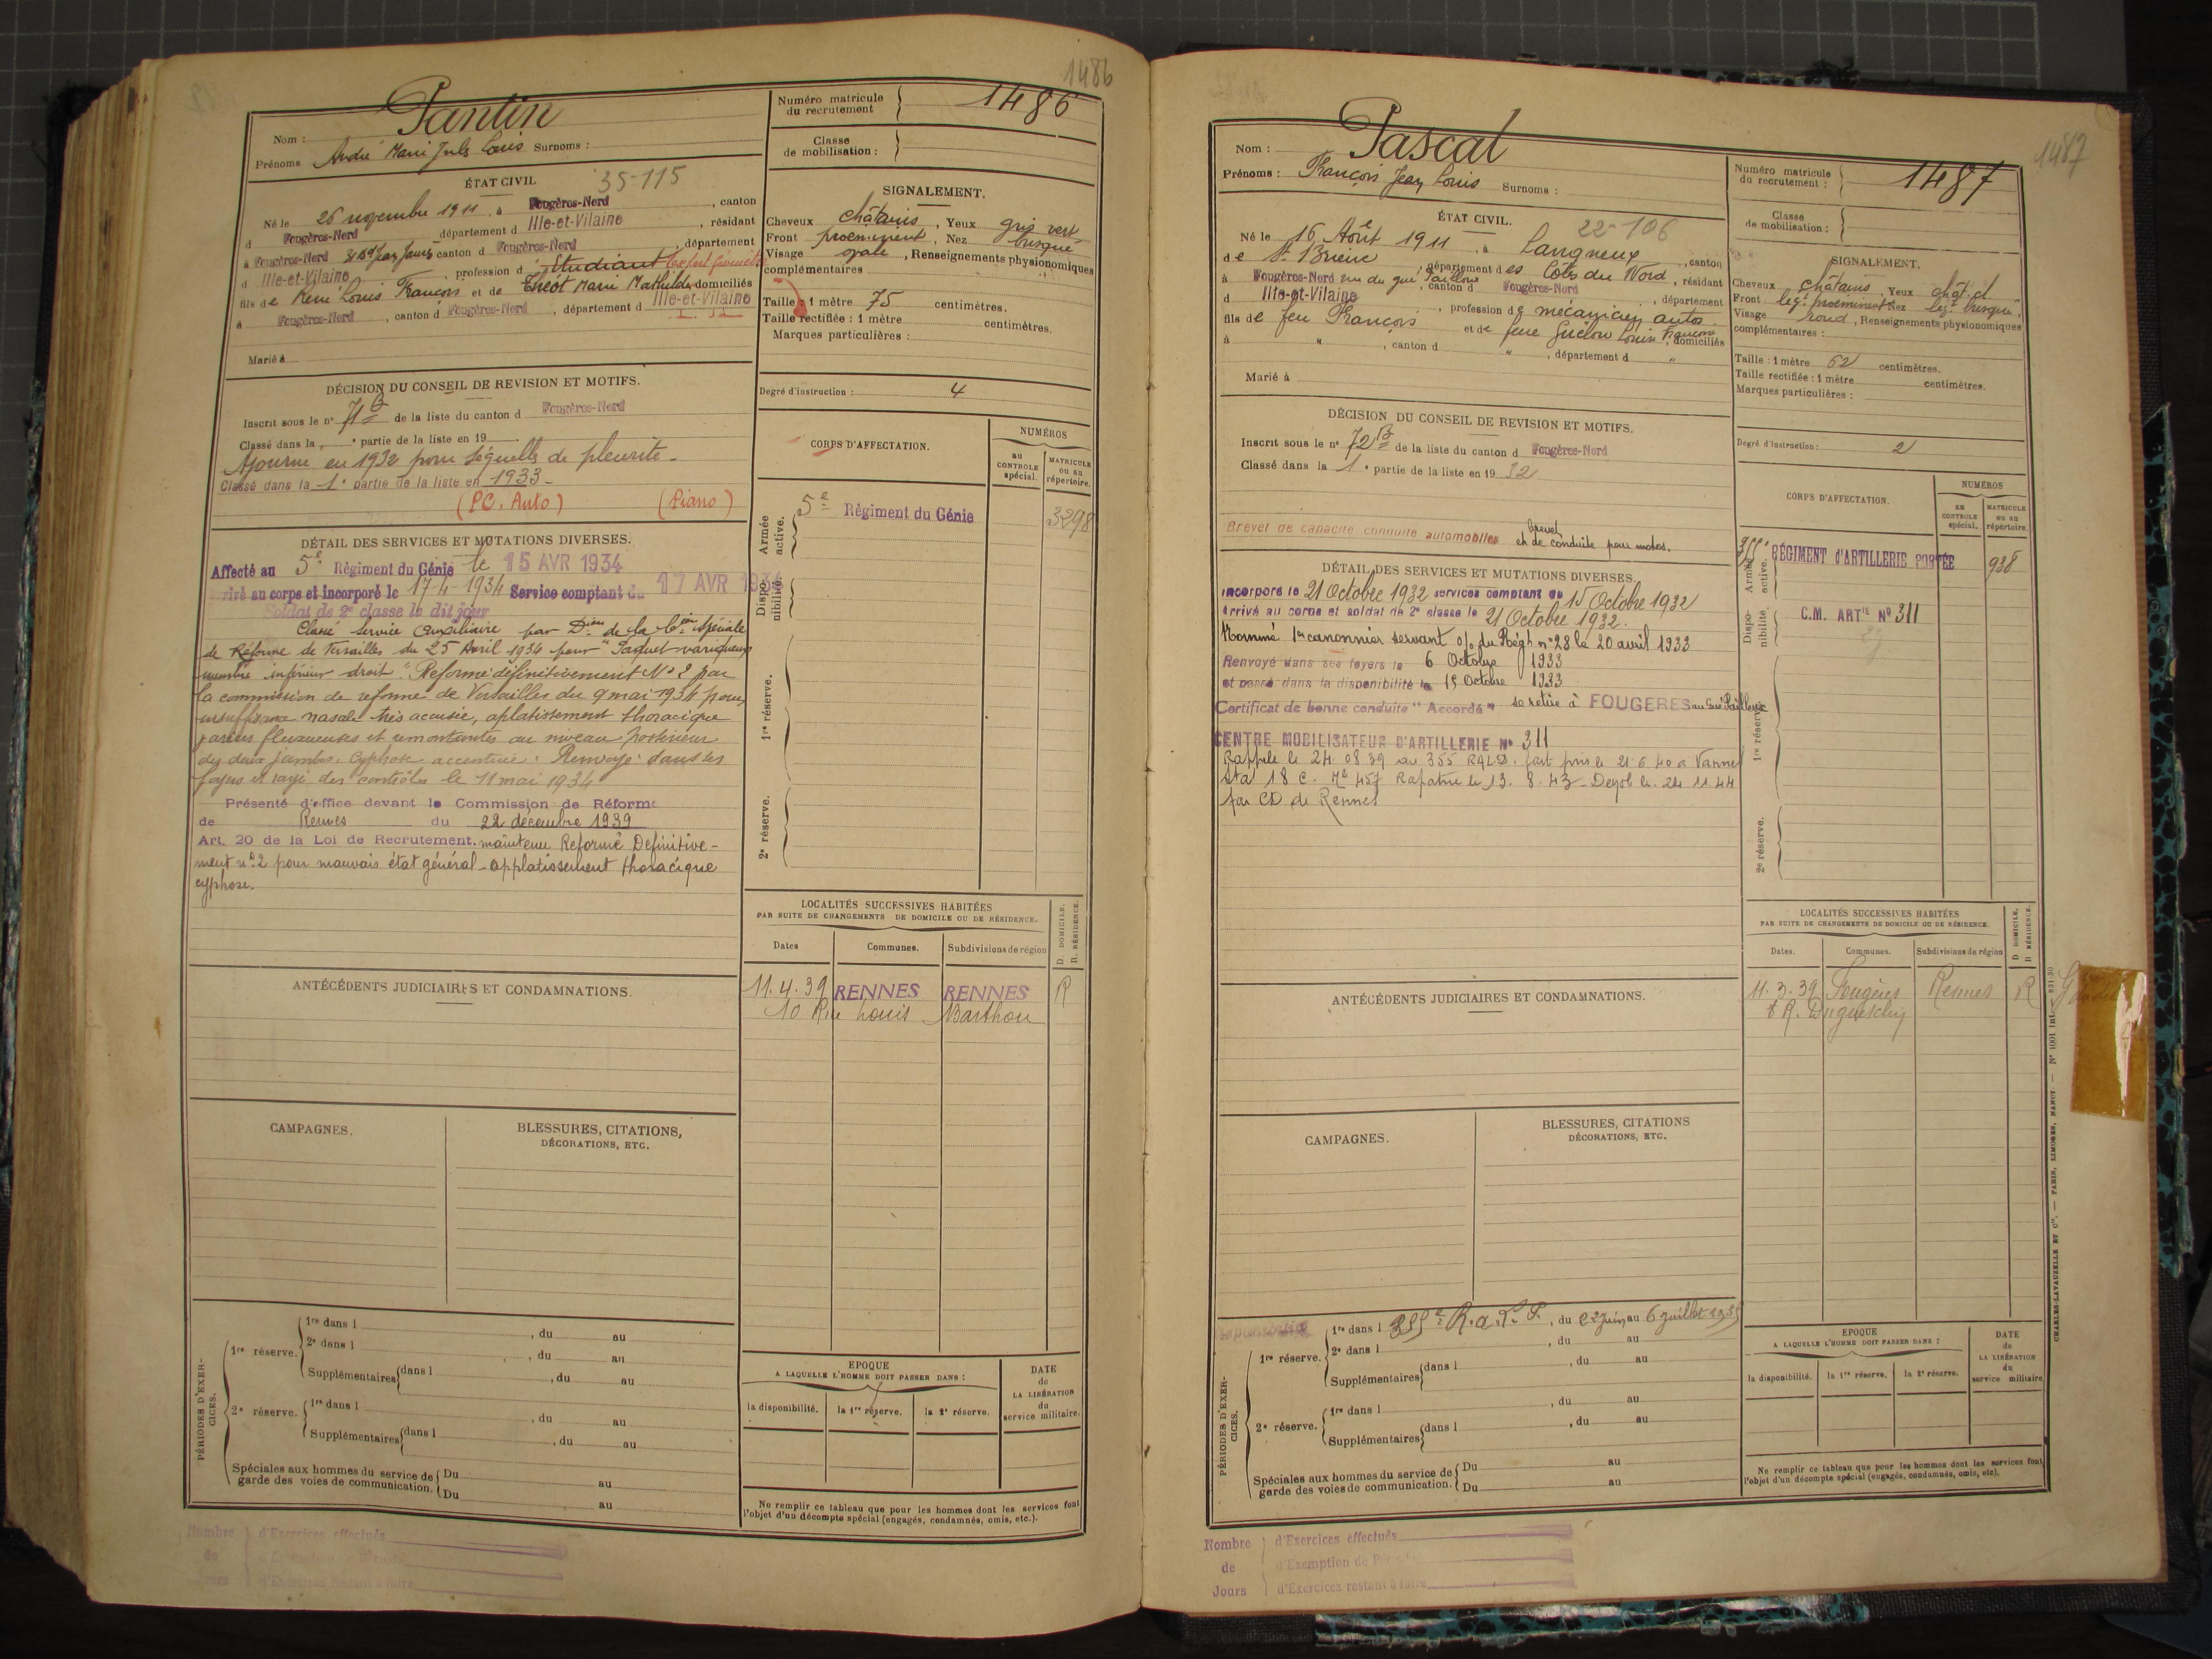 1486
Nom : Pantin
Prénoms André Marie Jules Louis Surnoms :
Numéro matricule du recrutement 1486
Classe de mobilisation :
ÉTAT CIVIL 35-115
Né le 26 novembre 1911, à Fougères-Nord, canton
d Fougères-Nord département d Ille-et-Vilaine, résidant
à Fougères-Nord 81 Bd Jean Jaurès canton d Fougères-Nord, département
d Ille-et-Vilaine, profession d'Etudiant
fils de René Louis François et de Marie Mathilde domiciliés
à Fougères-Nord, canton d Fougères-Nord, département d Ille-et-Vilaine
Marié à
SIGNALEMENT.
Cheveux châtains, Yeux gris vert
Front proeminent, Nez busqué
Visage ovale, Renseignements physionomiques
complémentaires
Taille : 1 mètre 75 centimètres.
Taille rectifiée : 1 mètre centimètres.
Marques particulières :
Degré d'instruction : 4
DÉCISION DU CONSEIL DE REVISION ET MOTIFS.
Inscrit sous le nº 71 B de la liste du canton d Fougères-Nord
Classé dans la º partie de la liste en 19
Ajourné en 1932 pour séquelles de pleurite -
Classé dans la 1º partie de la liste en 1933 -
(PC. Auto) (Piano)
DÉTAIL DES SERVICES ET MUTATIONS DIVERSES.
Affecté au 5e Règiment du Génie le 15 AVR 1934
Arrivé au corps et incorporé le 17-4-1934 Service comptant du 17 AVR 1934
Soldat de 2e classe le dit jour
Classé Service Auxiliaire par Dion de la Cion Spéciale
de Réforme de Versailles du 25 Avril 1934 pour "Paquet variqueux
membre inférieur droit". Réformé définitivement Nº 2 par
la commission de réforme de Versailles du 9 mai 1934 pour
insuffisance nasale très accusée, aplatissement thoracique
varices flexueuses et remontantes au niveau postérieur
des deux jambes. Cyphose accentuée. Renvoyé dans ses
foyers et rayé des contrôles le 11 mai 1934
Présenté d'office devant la Commission de Réforme
de Rennes du 22 décembre 1939
Art. 20 de la Loi de Recrutement. maintenu Réformé Définitive-
ment nº 2 pour mauvais état général - applatissement thoracique
cyphose.
CORPS D'AFFECTATION.
NUMÉROS
au CONTROLE spécial.
MATRICULE ou au répertoire.
Armée active.
5e Règiment du Génie 3298
Disponibilité.
1re réserve.
2e réserve.
LOCALITÉS SUCCESSIVES HABITÉES
PAR SUITE DE CHANGEMENTS DE DOMICILE OU DE RÉSIDENCE.
D. DOMICILE. R. RÉSIDENCE.
Dates Communes. Subdivisions de région
11.4.39 RENNES RENNES R
10 Rue Louis Barthou
ANTÉCÉDENTS JUDICIAIRES ET CONDAMNATIONS.
CAMPAGNES.
BLESSURES, CITATIONS,
DÉCORATIONS, ETC.
PÉRIODES D'EXERCICES.
1re réserve.
1re dans l , du au
2e dans l , du au
Supplémentaires dans l , du au
, du au
2e réserve.
1re dans l , du au
Supplémentaires dans l , du au
Spéciales aux hommes du service de garde des voies de communication.
Du au
Du au
EPOQUE
A LAQUELLE L'HOMME DOIT PASSER DANS :
la disponibilité. la 1re réserve. la 2e réserve.
DATE de LA LIBÉRATION du service militaire.
Ne remplir ce tableau que pour les hommes dont les services font
l'objet d'un décompte spécial (engagés, condamnés, omis, etc.).
Nombre de Jours
d'Exercices effectués
d'Exercices restant à faire
1487
Nom : Pascal
Prénoms : François Jean Louis Surnoms :
Numéro matricule du recrutement : 1487
Classe de mobilisation :
ÉTAT CIVIL. 22-106
Né le 16 Août 1911, à Langueux, canton
de St Brieuc, département des Côtes du Nord, résidant
à Fougères-Nord rue du gué Pailloux, canton d Fougères-Nord
d Ille-et-Vilaine, département
, profession de mécanicien autos.
fils de feu François et de feue Louise Françoise, domiciliés
à " , canton d " , département d "
Marié à
SIGNALEMENT.
Cheveux châtains, Yeux chât. cl.
Front lég. proeminent Nez lég. busqué,
Visage rond, Renseignements physionomiques
complémentaires :
Taille : 1 mètre 62 centimètres.
Taille rectifiée : 1 mètre centimètres.
Marques particulières :
Degré d'instruction : 2
DÉCISION DU CONSEIL DE REVISION ET MOTIFS.
Inscrit sous le nº 72 B de la liste du canton d Fougères-Nord
Classé dans la 1º partie de la liste en 1932
Brevet de capacité conduite automobiles et brevet de conduite pour motos.
DÉTAIL DES SERVICES ET MUTATIONS DIVERSES.
Incorporé le 21 Octobre 1932 services comptent du 15 Octobre 1932
Arrivé au corps et soldat de 2e classe le 21 Octobre 1932.
Nommé 1er canonnier servant o/ du Régt nº 28 le 20 avril 1933
Renvoyé dans ses foyers le 6 Octobre 1933
et passé dans la disponibilité le 15 Octobre 1933
Certificat de bonne conduite "Accordé" se retire à FOUGERES
CENTRE MOBILISATEUR D'ARTILLERIE Nº 311
Rappelé le 24.08.39 au 355 RALP. fait pris. le 21.6.40 à Vannes
Sta 18 C. Me 457 Rapatrié le 13.8.43 - Demob le 24 11 44
par CD de Rennes
CORPS D'AFFECTATION.
NUMÉROS
au CONTROLE spécial.
MATRICULE ou au répertoire.
Armée active.
355e RÉGIMENT d'ARTILLERIE PORTÉE 938
Disponibilité.
C.M. ARTIE Nº 311
1re réserve.
2e réserve.
LOCALITÉS SUCCESSIVES HABITÉES
PAR SUITE DE CHANGEMENTS DE DOMICILE OU DE RÉSIDENCE.
D. DOMICILE. R. RÉSIDENCE.
Dates. Communes. Subdivisions de région
11.3.39 Fougères Rennes R
R. Duguesclin
ANTÉCÉDENTS JUDICIAIRES ET CONDAMNATIONS.
CAMPAGNES.
BLESSURES, CITATIONS
DÉCORATIONS, ETC.
PÉRIODES D'EXERCICES.
1re réserve.
1re dans l 355e R.A.L.P., du 22 juin au 6 juillet
2e dans l , du au
Supplémentaires dans l , du au
, du au
2e réserve.
1re dans l , du au
Supplémentaires dans l , du au
Spéciales aux hommes du service de garde des voies de communication.
Du au
Du au
EPOQUE
A LAQUELLE L'HOMME DOIT PASSER DANS :
la disponibilité. la 1re réserve. la 2e réserve.
DATE de LA LIBÉRATION du service militaire
Ne remplir ce tableau que pour les hommes dont les services font
l'objet d'un décompte spécial (engagés, condamnés, omis, etc).
Nombre de Jours
d'Exercices effectués
d'Exemption de
d'Exercices restant à faire
CHARLES-LAVAUZELLE ET Cie. — PARIS, LIMOGES, NANCY